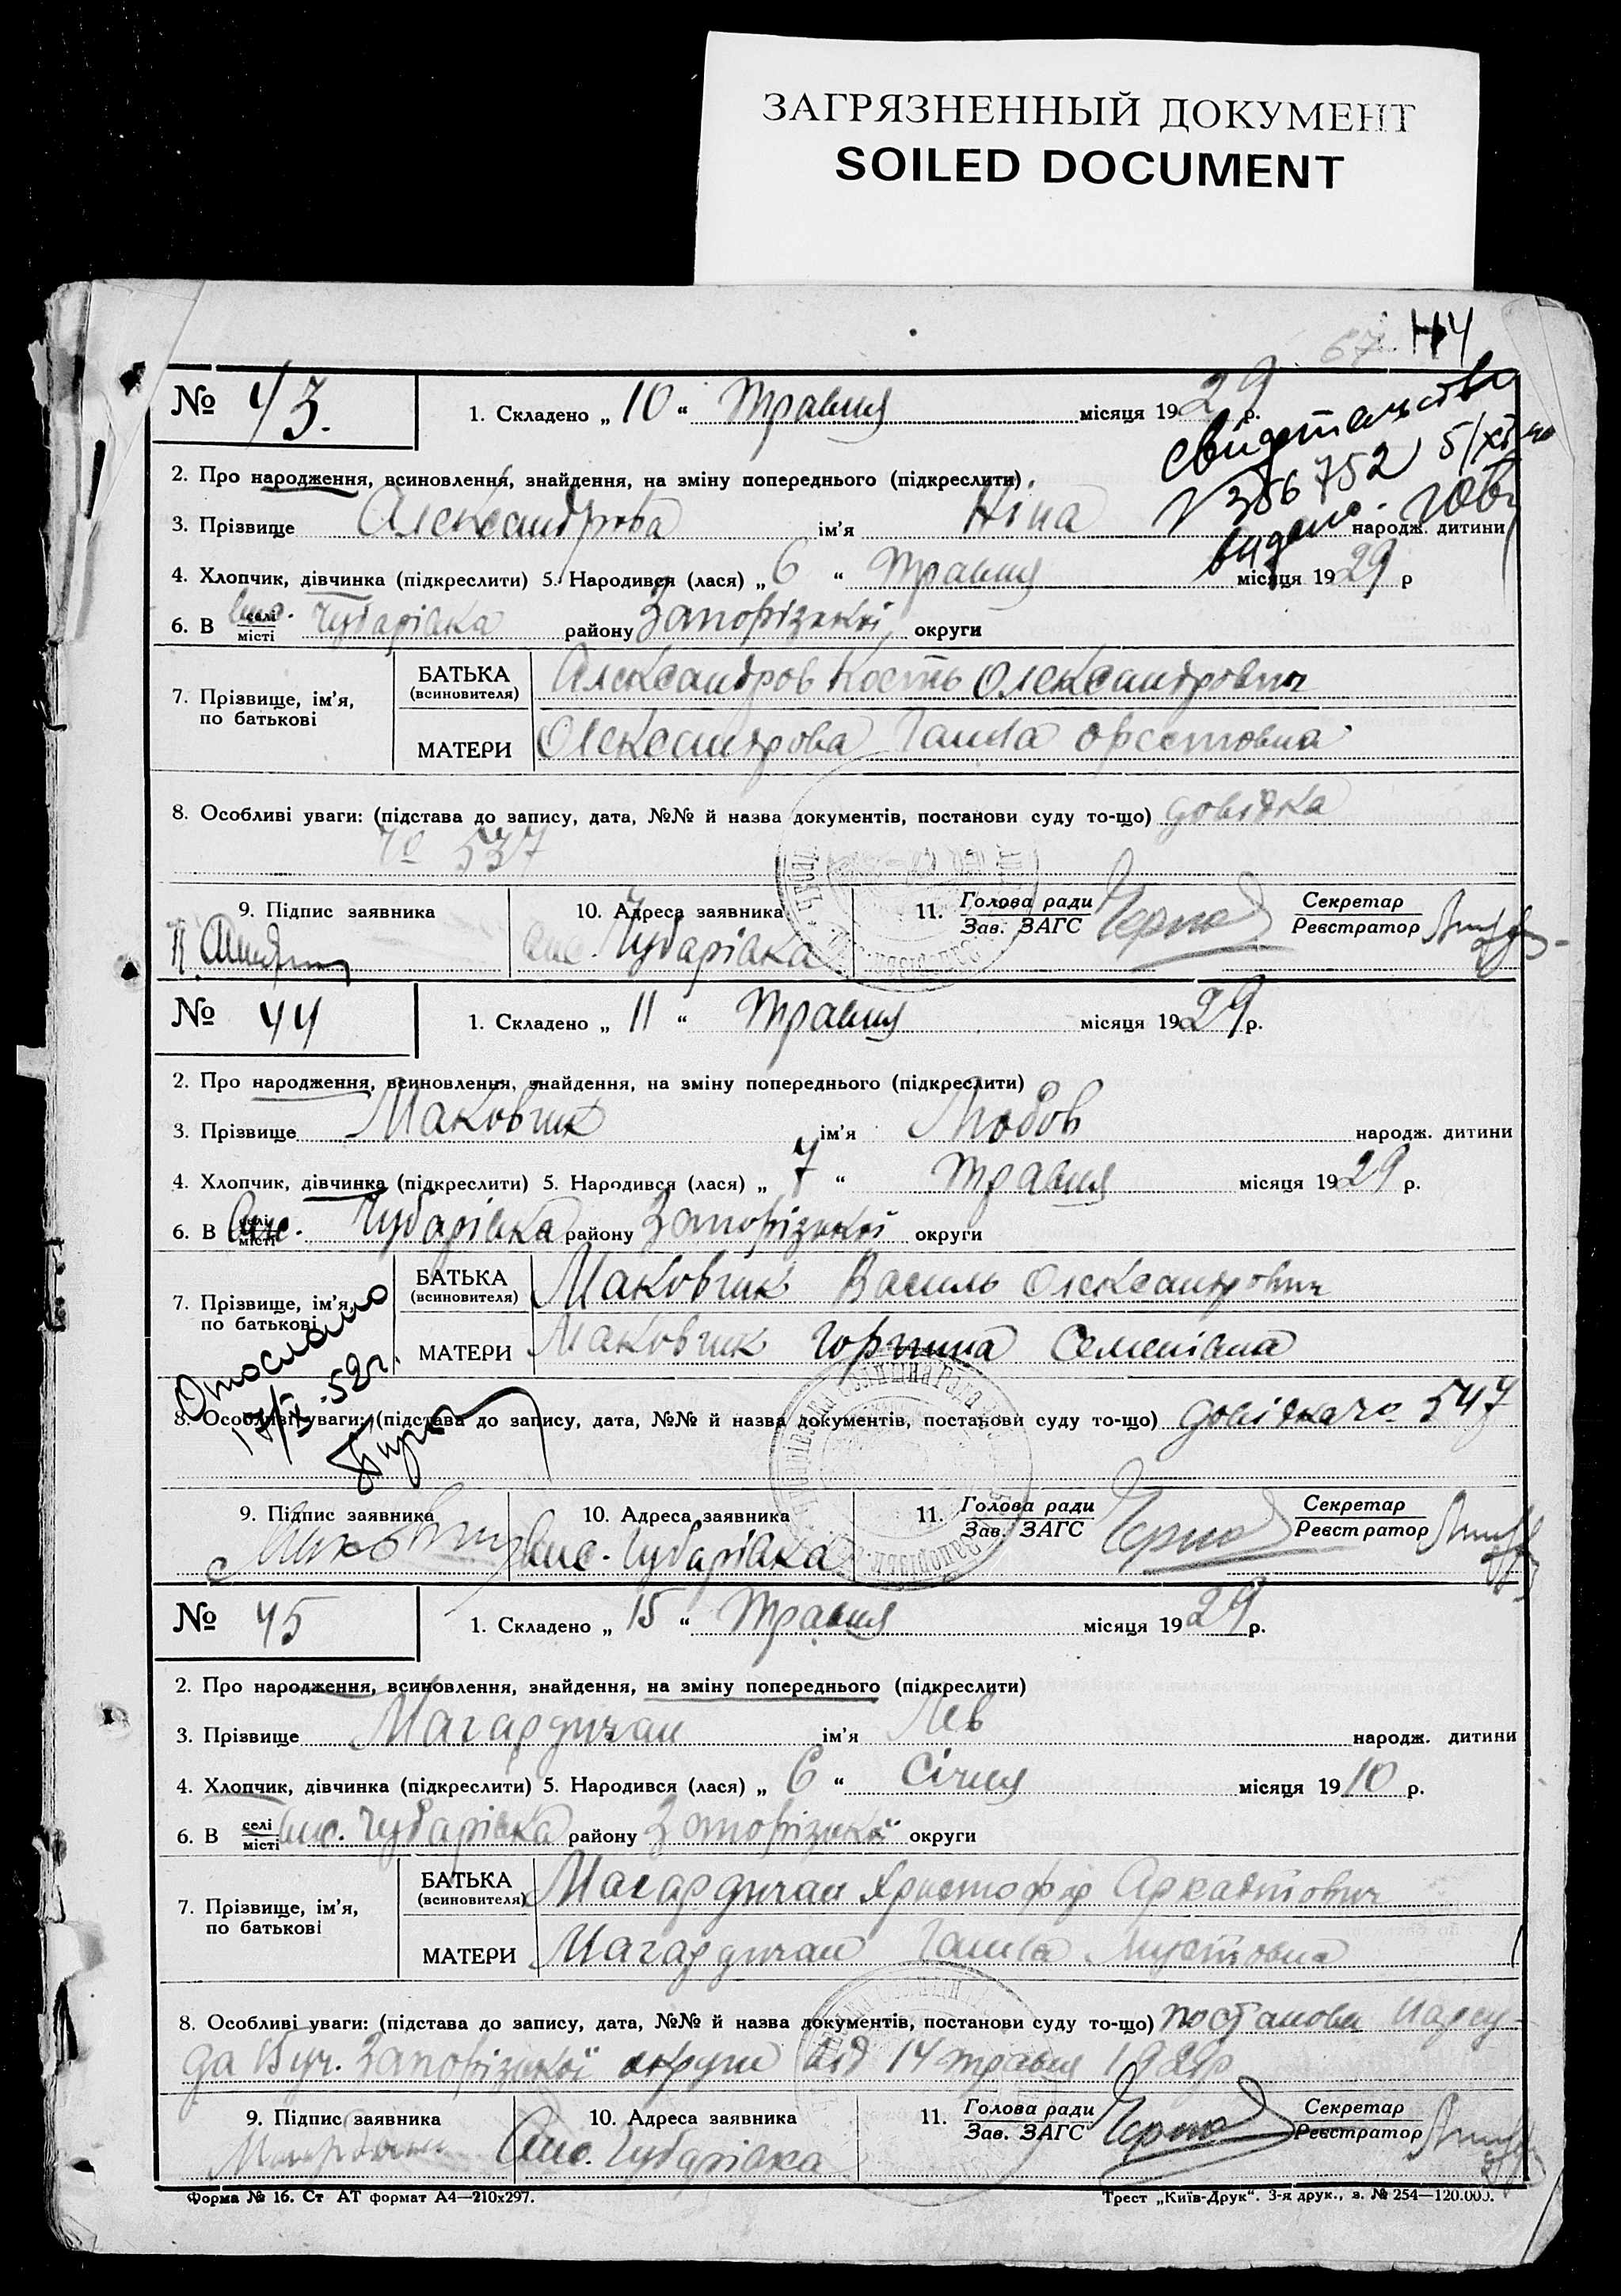 ЗАГРЯЗНЕННЫЙ ДОКУМЕНТ
SOILED DOCUMENT
67
№ 43.
1. Складено „ 10 “ травня місяця 1929 р.
свидетельство
2. Про народження, всиновлення, знайдення, на зміну попереднього (підкреслити)
356752
3. Прізвище Александрова ім'я Ніна народж. дитини
4. Хлопчик, дівчинка (підкреслити) 5. Народився (лася) „ 6 “ травня місяця 1929 р
6. В селі/місті Чубарівка району Запорізької округи
7. Прізвище, ім'я, по батькові
БАТЬКА (всиновителя) Александров Кость Олександрович
МАТЕРИ Олександрова Ганна
8. Особливі уваги: (підстава до запису, дата, №№ й назва документів, постанови суду то-що) довідка
№ 537
9. Підпис заявника
10. Адреса заявника
11. Голова ради Зав. ЗАГС
Секретар Реєстратор
Чубарівка
№ 44
1. Складено „ 11 “ травня місяця 1929 р.
2. Про народження, всиновлення, знайдення, на зміну попереднього (підкреслити)
3. Прізвище Маковчик ім'я Любов народж. дитини
4. Хлопчик, дівчинка (підкреслити) 5. Народився (лася) „ 7 “ травня місяця 1929 р.
6. В селі/місті Чубарівка району Запорізької округи
7. Прізвище, ім'я, по батькові
БАТЬКА (всиновителя) Маковчик Василь Олександрович
МАТЕРИ Маковчик Горпина Семенівна
Отослано
8. Особливі уваги: (підстава до запису, дата, №№ й назва документів, постанови суду то-що) довідка № 547
9. Підпис заявника
10. Адреса заявника
11. Голова ради Зав. ЗАГС
Секретар Реєстратор
Чубарівка
№ 45
1. Складено „ 15 “ травня місяця 1929 р.
2. Про народження, всиновлення, знайдення, на зміну попереднього (підкреслити)
3. Прізвище Магардичан ім'я Лев народж. дитини
4. Хлопчик, дівчинка (підкреслити) 5. Народився (лася) „ 6 “ Січня місяця 1910 р.
6. В селі/місті Чубарівка району Запорізької округи
7. Прізвище, ім'я, по батькові
БАТЬКА (всиновителя) Магардичан Христофор
МАТЕРИ Магардичан Ганна
8. Особливі уваги: (підстава до запису, дата, №№ й назва документів, постанови суду то-що) постанова нарсу-
да Запорізької округи від 14 травня 1929р
9. Підпис заявника
10. Адреса заявника
11. Голова ради Зав. ЗАГС
Секретар Реєстратор
Чубарівка
Форма № 16. Ст АТ формат А4—210x297.
Трест „Київ-Друк“. 3-я друк., з. № 254—120.000.